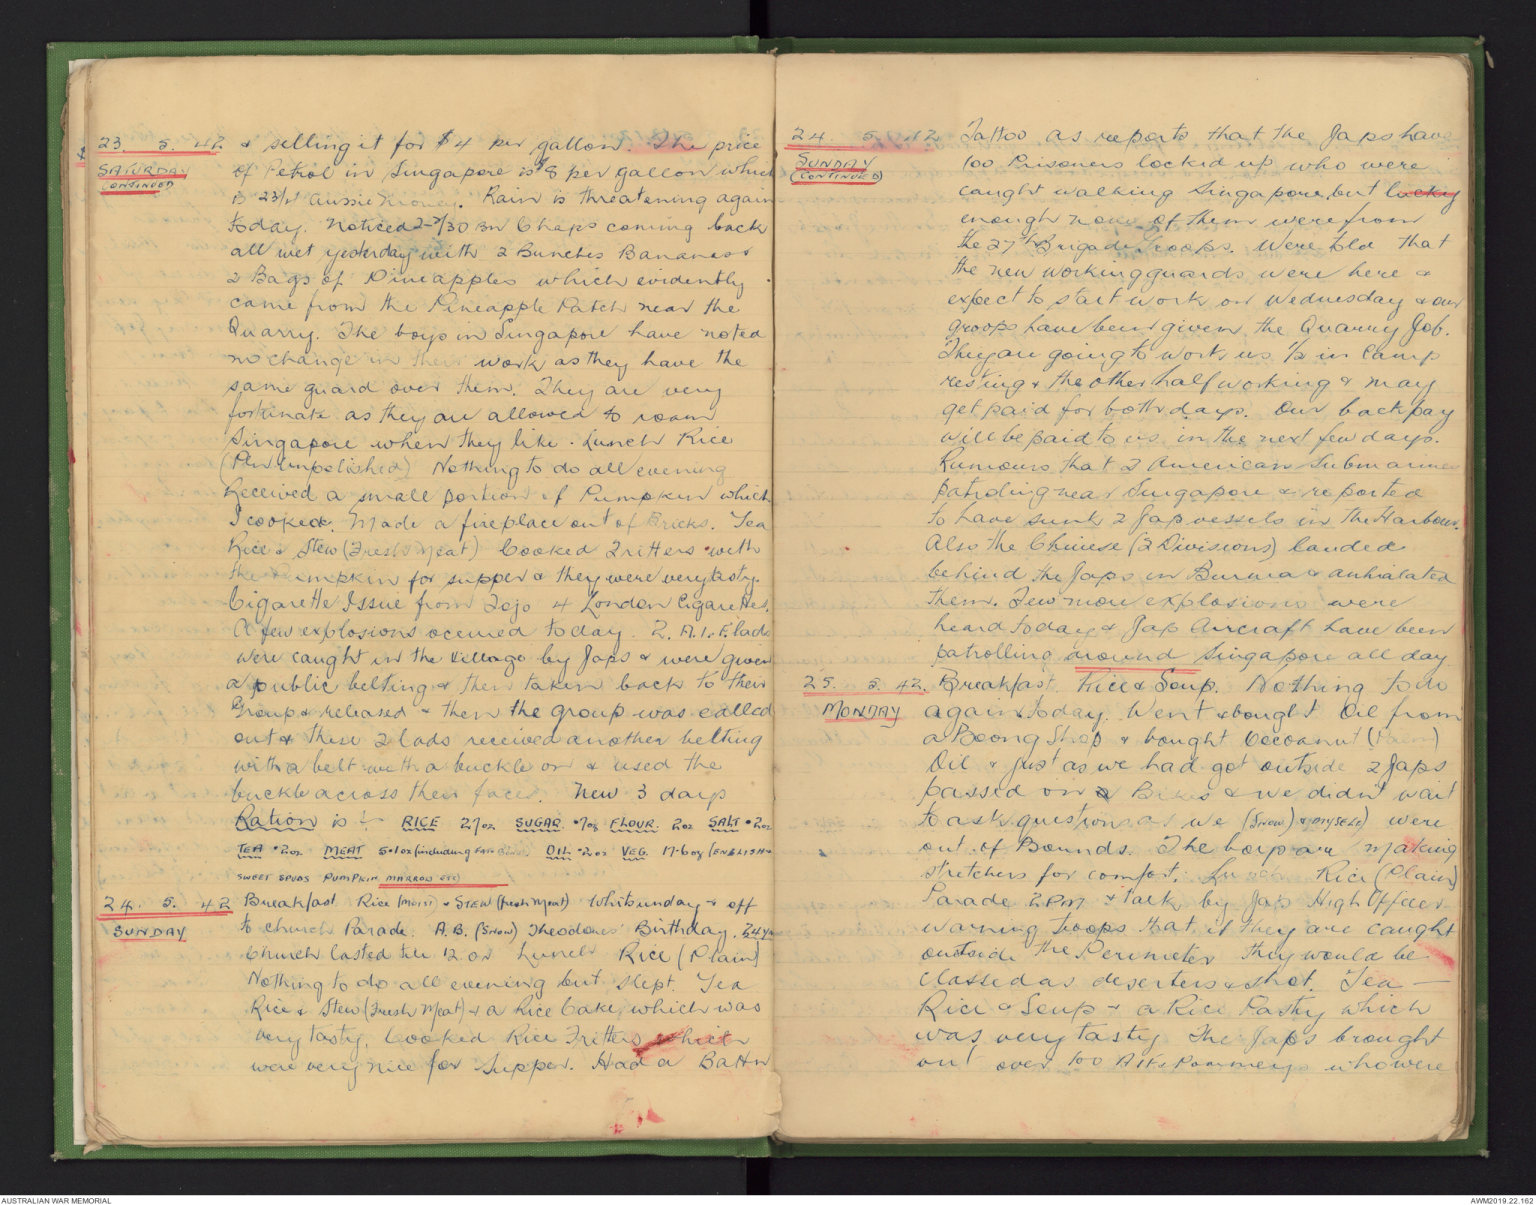 23. 5. 42
SATURDAY
CONTINUED
& selling it for $4 per gallon. The price
of Petrol in Singapore is $8 per gallon which
is 23/4 Aussie money. Rain is threatening again
today. Noticed 2/30 Bn Chaps coming back
all wet yesterday with 2 Bunches Bananas &
2 Bags of Pineapples which evidently
came from the Pineapple Patch near the
Quarry. The boys in Singapore have noted
no change in their work as they have the
same guard over them. They are very
fortunate as they are allowed to roam
Singapore when they like. Lunch Rice
(Pln unpolished) Nothing to do all evening
Received a small portion of Pumpkin which
I cooked. Made a fireplace out of Bricks. Tea
Rice & Stew (Fresh Meat) Cooked Fritters with
the Pumpkin for supper & they were very tasty.
Cigarette Issue from Tojo 4 London Cigarettes.
A few explosions occured today. 2. A.I.F. lads
were caught in the village by Japs & were given
a public belting & then taken back to their
Group & released & then the group was called
out & these 2 lads received another belting
with a belt with a buckle on & used the
buckle across their faces. New 3 days
Ration is :- RICE 27oz SUGAR .7oz FLOUR. 2oz SALT .2oz
TEA .2oz MEAT 5.1oz (including ) OIL .2oz VEG. 17.6oz (ENGLISH &
SWEET SPUDS PUMPKIN MARROW ETC)
24. 5. 42
SUNDAY
Breakfast Rice (Moist) & STEW (fresh Meat) Whitsunday & off
to church Parade. A.B. (Snow) Theodores' Birthday. 24 yrs
Church lasted till 12.00 Lunch Rice (Plain)
Nothing to do all evening but slept. Tea
Rice & Stew (Fresh Meat) & a Rice Cake, which was
very tasty. Cooked Rice Fritters which
were very nice for Supper. Had a Battn
24 5. 42
SUNDAY
(CONTINUED)
Tattoo as reports that the Japs have
100 Prisoners locked up who were
caught walking Singapore, but lucky
enough none of them were from
the 27th Brigade Troops. Were told that
the new working guards were here &
expect to start work on Wednesday & our
groops have been given the Quarry Job.
They are going to work us 1/2 in Camp
resting & the other half working & may
get paid for both days. Our back pay
will be paid to us in the next few days.
Rumours that 2 American Submarines
patroling near Singapore & reported
to have sunk 2 Jap vessels in the Harbour.
Also the Chinese (2 Divisions) landed
behind the Japs in Burma & anhialated
them. Few more explosions were
heard today & Jap Aircraft have been
patrolling around Singapore all day
25. 5. 42.
MONDAY
Breakfast. Rice & Soup. Nothing to do
again today. Went & bought Oil from
a Boong Shop & bought Cocoanut (Palm)
Oil & just as we had got outside 2 Japs
passed on Bikes & we didn't wait
to ask questions as we (SNOW) & MYSELF) were
out of Bounds. The boys are making
stretchers for comfort. Lunch Rice (Plain)
Parade 2 PM & talk by Jap High Officer
warning Troops that if they are caught
outside the Perimeter they would be
classed as deserters & shot. Tea —
Rice & Soup & a Rice Pasty which
was very tasty The Japs brought
out over 100 AIF & Pommeys who were
AUSTRALIAN WAR MEMORIAL
AWM2019.22.162